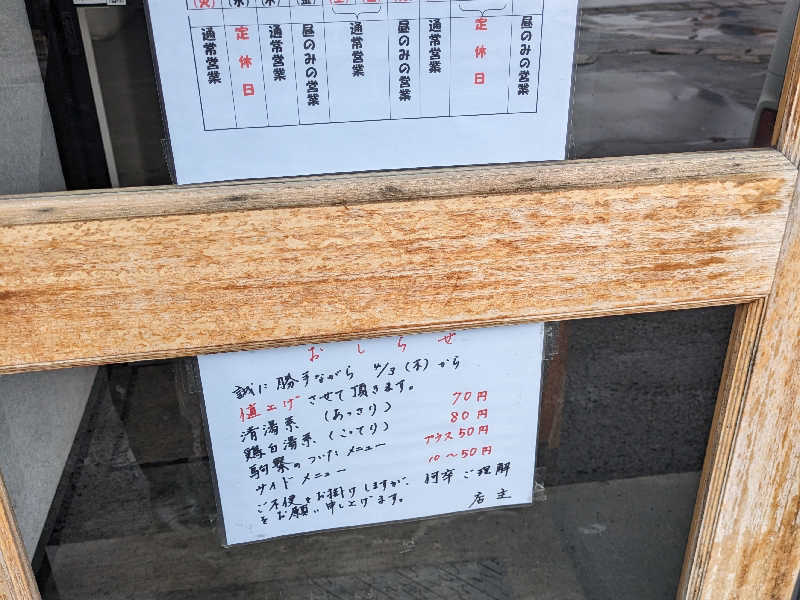 (火) (水) (木) (金) (土) (日)
通常営業 定休日 通常営業 昼のみの営業 通常営業 昼のみの営業 通常営業 定休日 昼のみの営業
おしらせ
誠に勝手ながら 4/3(木)から
値上げさせて頂きます。
清湯系 (あっさり) 70円
鶏白湯系(こってり) 80円
駒繋のついたメニュー プラス50円
サイドメニュー 10〜50円
ご不便をお掛けしますが、何卒ご理解
をお願い申し上げます。
店主